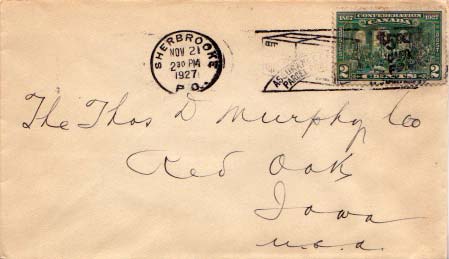 SHERBROOKE
NOV 21
2 30 PM
1927
P.Q.
1867 CONFEDERATION 1927
CANADA
2 CENTS 2
The Thos D Murphy Co
Red Oak
Iowa
U.S.A.